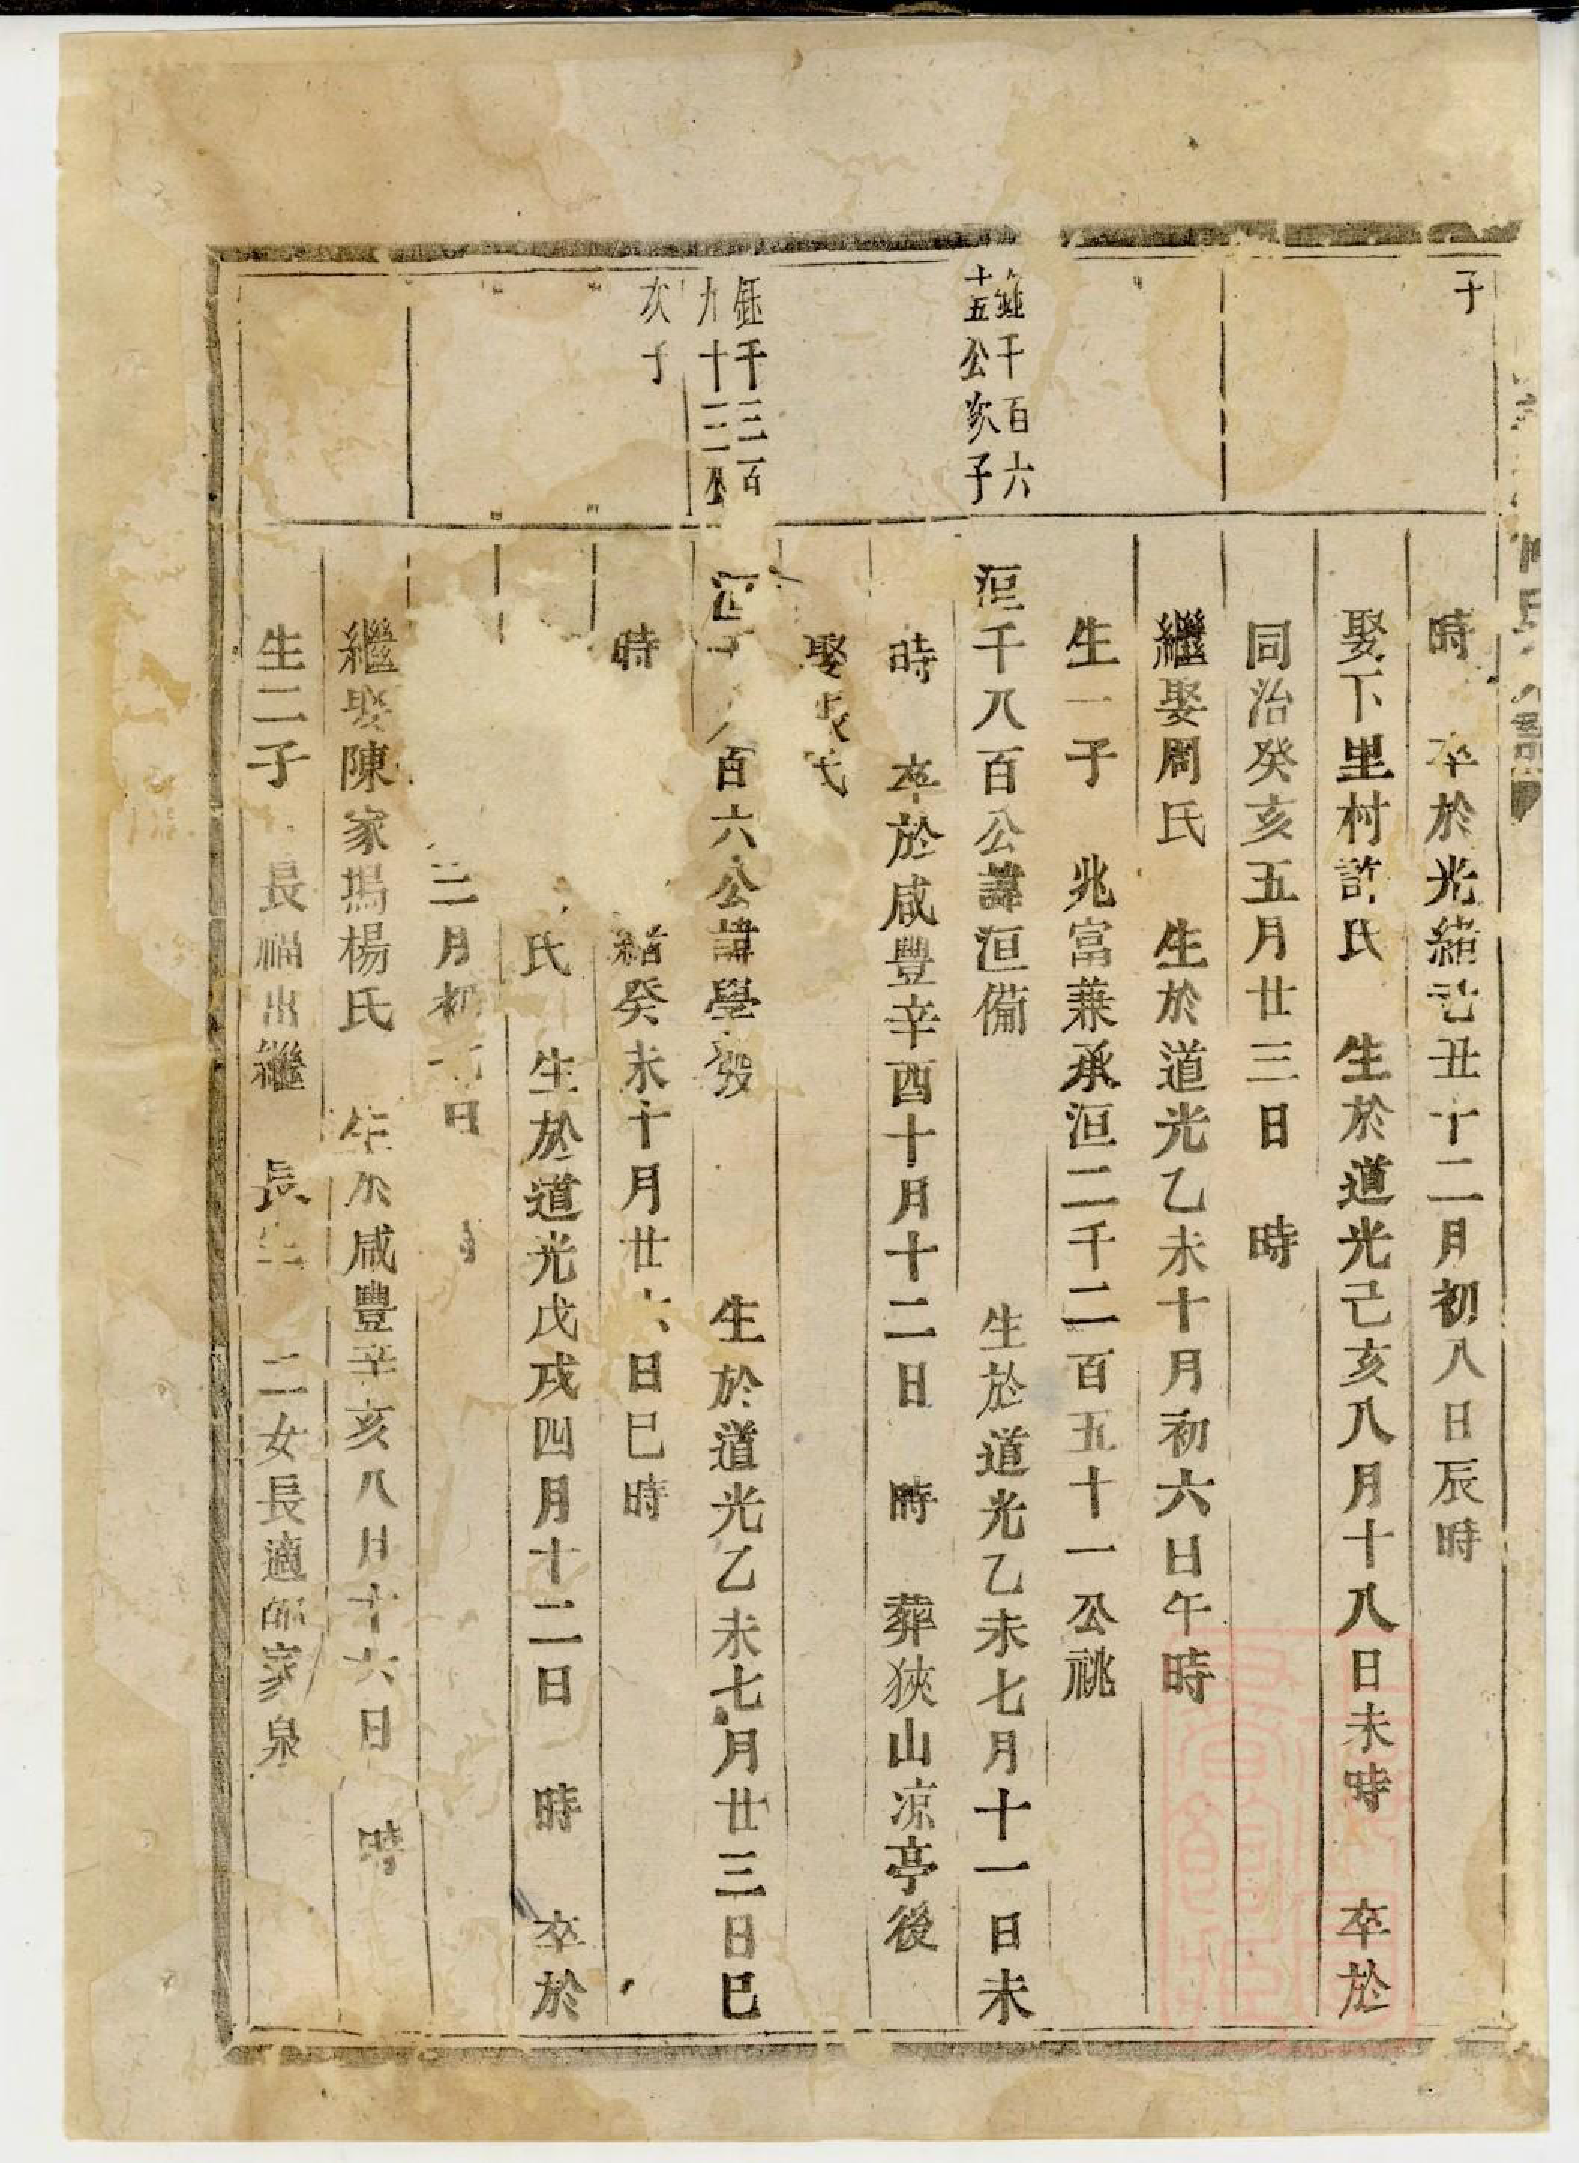 子
時　卒於光緒乙丑十二月初八日辰時
娶下里村許氏　生於道光己亥八月十八日未時　卒於
同治癸亥五月廿三日　時
繼娶周氏　生於道光乙未十月初六日午時
生一子　兆富兼承洹二千二百五十一公祧
千百六
十五公次子
洹千八百公諱洹備　生於道光乙未七月十一日未
時　卒於咸豐辛酉十月十二日　時　葬狹山凉亭後
娶氏
鈺千三百
九十三公
次子
百六公諱學　生於道光乙未七月廿三日巳
時　緒癸未十月廿六日巳時
氏　生於道光戊戌四月十二日　時　卒於
三月初日
繼娶陳家塢楊氏　生於咸豐辛亥八月十六日　時
生二子　長福出繼　長生　二女長適邵家泉